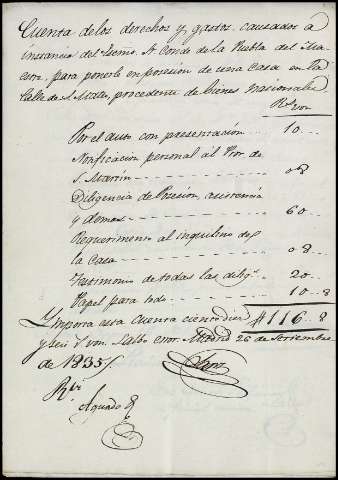 Cuenta de los derechos y gastos causados a
instancia del Exmo. S. Conde de la Puebla del Mae
stre, para ponerle en posesion de una Casa en la
Calle de S. Mateo, procedente de bienes nacionales
Rs. von
Por el auto con presentación ... 10 ...
Notificacion personal al Pror. de
S. Martin ... 08
Diligencia de Posesion, asistencia
y demas ... 60 ...
Requerimiento al inquilino de
la Casa ... 08
Testimonio de todas las dilig.s 20 ...
Papel para todo ... 10 .. 8
Importa esta Cuenta ciento diez #116 .. 8
y seis rs. von. Salbo error. Madrid 26 de Setiembre
de 1835
Rvi
Aguado